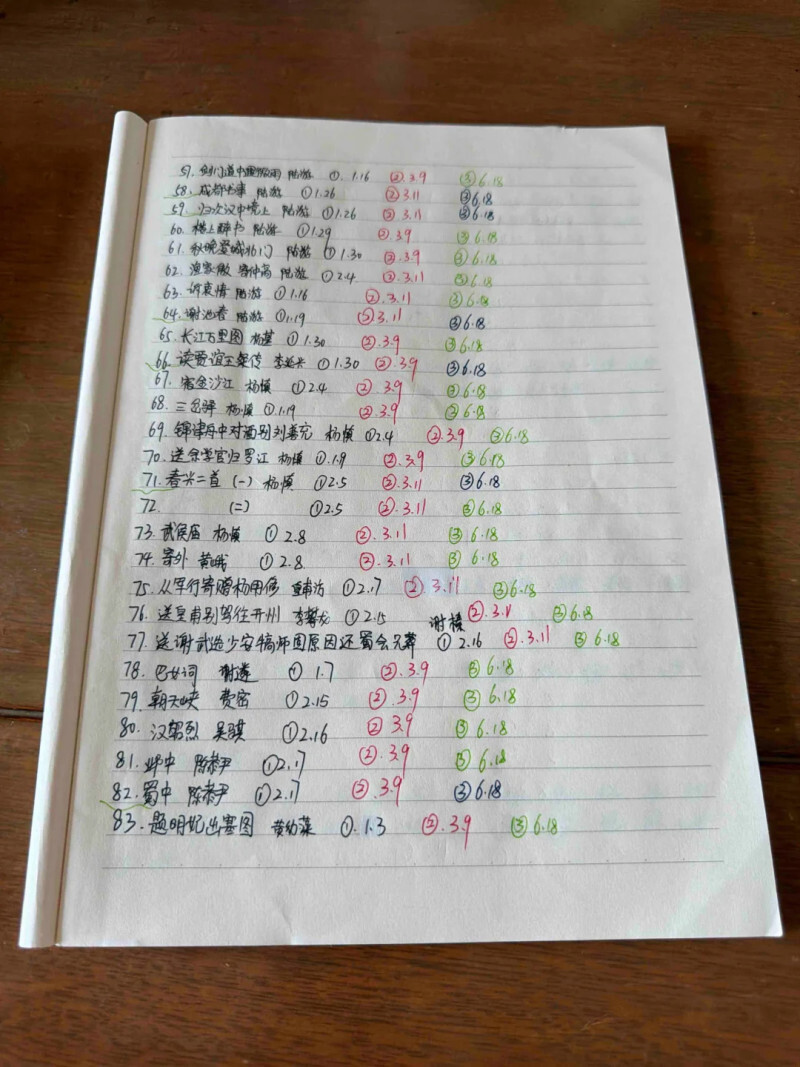 57. 剑门道中遇微雨 陆游 ①.1.16 ②.3.9 ③6.18
58. 成都书事 陆游 ①1.26 ②3.11 ③6.18
59. 归次汉中境上 陆游 ①1.26 ②3.11 ③6.18
60. 楼上醉书 陆游 ①1.29 ②.3.9 ③6.18
61. 秋晚登城北门 陆游 ①1.30 ②.3.9 ③6.18
62. 渔家傲 寄仲高 陆游 ①2.4 ②.3.11 ③6.18
63. 诉衷情 陆游 ①1.16 ②.3.11 ③6.18
64. 谢池春 陆游 ①1.19 ②3.11 ③6.18
65. 长江万里图 杨基 ①1.30 ②.3.9 ③6.18
66. 读贾谊王粲传 李 ①1.30 ②.3.9 ③6.18
67. 宿金沙江 杨慎 ①2.4 ②.3.9 ③6.18
68. 三岔驿 杨慎 ①1.19 ②3.9 ③6.18
69. 锦津舟中对酒别刘善充 杨慎 ①2.4 ②.3.9 ③6.18
70. 送余学官归罗江 杨慎 ①.1.9 ②.3.9 ③6.18
71. 春兴二首 (一) 杨慎 ①2.5 ②.3.11 ③6.18
72. (二) ①2.5 ②.3.11 ③6.18
73. 武侯庙 杨慎 ①2.8 ②.3.11 ③6.18
74. 寄外 黄峨 ①2.8 ②.3.11 ③6.18
75. 从军行寄赠杨用修 皇甫汸 ①2.17 ②3.11 ③6.18
76. 送皇甫别驾往开州 李攀龙 ①2.15 ②.3.11 ③6.18
77. 送谢武选少安犒师固原因还蜀会兄葬 谢榛 ①2.16 ②3.11 ③6.18
78. 巴女词 ①1.7 ②.3.9 ③6.18
79. 朝天峡 费密 ①2.15 ②.3.9 ③6.18
80. 汉昭烈 吴骐 ①2.16 ②3.9 ③6.18
81. 中 陈恭尹 ①2.17 ②.3.9 ③6.18
82. 蜀中 陈恭尹 ①2.17 ②.3.9 ③6.18
83. 题明妃出塞图 黄幼藻 ①.1.3 ②.3.9 ③6.18